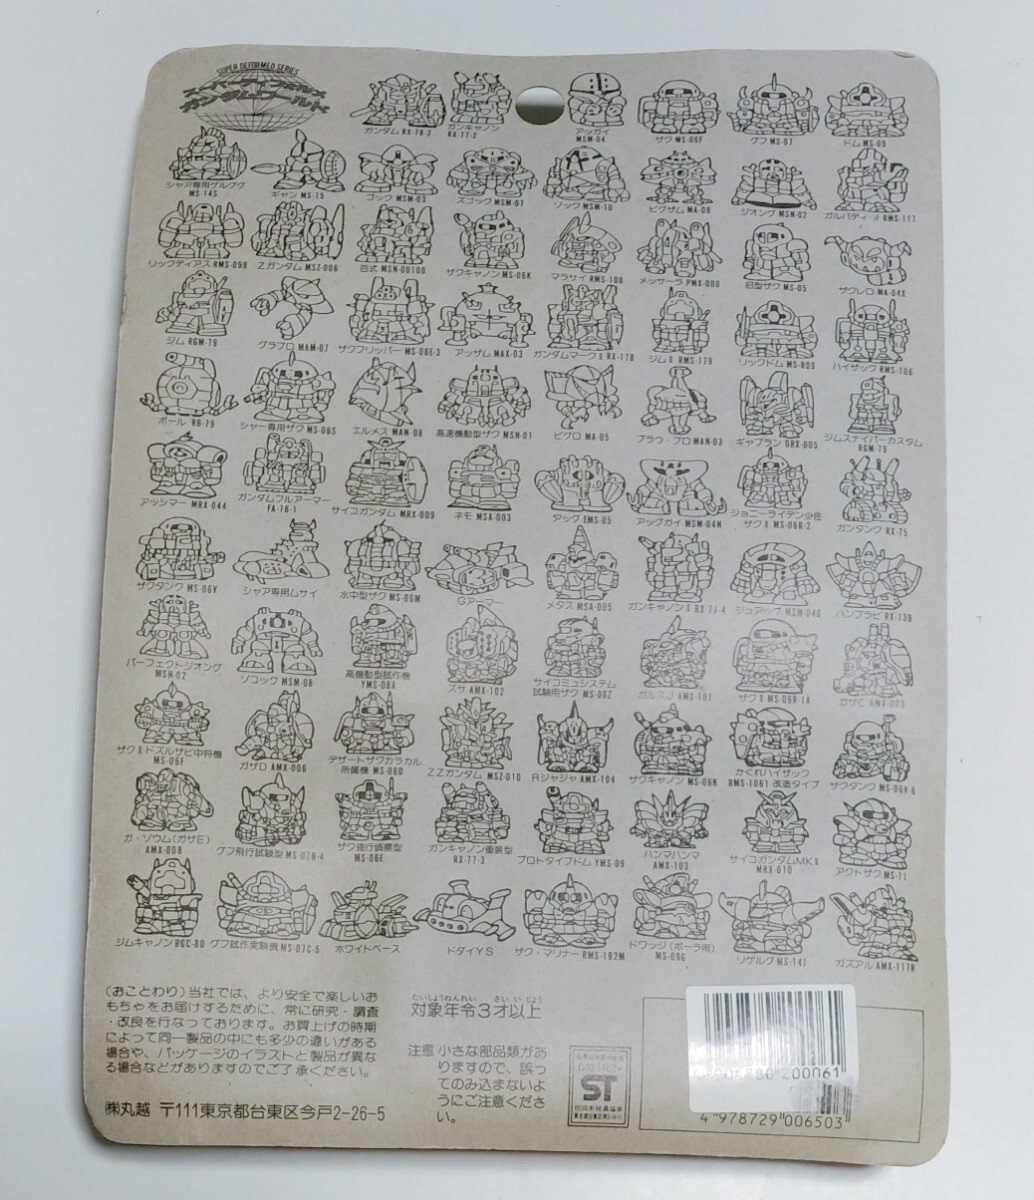 SUPER DEFORMED SERIES
スーパーディフォルメ
ガンダムワールド
ガンダム RX-78-2
ガンキャノン
RX-77-2
アッガイ
MSM-04
ザク MS-06F
グフ MS-07
ドム MS-09
シャア専用ゲルググ
MS-14S
ギャン MS-15
ゴック MSM-03
ズゴック MSM-07
ゾック MSM-10
ビグザム MA-08
ジオング MSN-02
ガルバディ・β RMS-117
リックディアス RMS-099
Zガンダム MSZ-006
百式 MSN-00100
ザクキャノン MS-06K
マラサイ RMS-108
メッサーラ PMX-000
旧型ザク MS-05
ザクレロ MA-04X
ジム RGM-79
グラブロ MAM-07
ザクフリッパー MS-06E-3
アッザム MAX-03
ガンダムマークⅡ RX-178
ジムⅡ RMS-179
リックドム MS-R09
ハイザック RMS-106
ボール RB-79
シャー専用ザク MS-06S
エルメス MAN-08
高速機動型ザク MSN-01
ビグロ MA-05
ブラウ・ブロ MAN-03
ギャプラン ORX-005
ジムスナイパーカスタム
RGM-79
アッシマー MRX-044
ガンダムフルアーマー
FA-78-1
サイコガンダム MRX-009
ネモ MSA-003
アッグ EMS-05
アッグガイ MSM-04N
ジョニーライデン少佐
ザクⅡ MS-06R-2
ガンタンク RX-75
ザクタンク MS-06V
シャア専用ムサイ
水中型ザク MS-06M
Gアーマー
メタス MSA-005
ガンキャノンⅡ RX-77-4
ジュアッグ MSM-04G
ハンブラビ RX-139
パーフェクトジオング
MSN-02
ゾゴック MSM-08
高機動型試作機
YMS-08A
ズサ AMX-102
サイコミュシステム
試験用ザク MS-06Z
ガルスJ AMX-101
ザクⅡ MS-06R-1A
ガザC AMX-003
ザクⅡドズルザビ中将機
MS-06F
ガザD AMX-006
デザートザクカラカル
所属機 MS-06D
ZZガンダム MSZ-010
Rジャジャ AMX-104
ザクキャノン MS-06K
かくれハイザック
RMS-1061 改造タイプ
ザクタンク MS-06V-6
ガ・ゾウム(ガザE)
AMX-008
グフ飛行試験型 MS-07H-4
ザク強行偵察型
MS-06E
ガンキャノン重装型
RX-77-3
プロトタイプドム YMS-09
ハンマハンマ
AMX-103
サイコガンダムMKⅡ
MRX-010
アクトザク MS-11
ジムキャノン RGC-80
グフ試作実験機 MS-07C-5
ホワイトベース
ドダイYS
ザク・マリナー RMS-192M
ドワッジ(ポーラ用)
MS-09G
リゲルグ MS-14J
ガズアル AMX-117R
(おことわり)当社では、より安全で楽しいお
もちゃをお届けするために、常に研究・調査
・改良を行なっております。お買上げの時期
によって同一製品の中にも多少の違いがある
場合や、パッケージのイラストと製品が異な
る場合などがありますのでご了承ください。
㈱丸越 〒111東京都台東区今戸2-26-5
たいしょうねんれい さい いじょう
対象年令3才以上
注意 小さな部品類があ
りますので、誤っ
てのみ込まないよ
うにご注意くださ
い。
ST
4 978729 006503